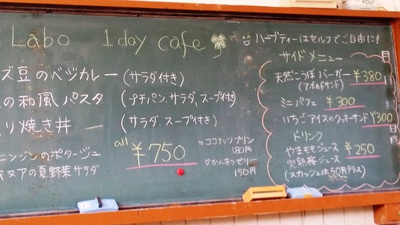 Labo 1day cafe
ハーブティーはセルフでご自由に!
ズ豆のベジカレー (サラダ付き)
の和風パスタ (プチパン、サラダ、スープ付き)
り焼き丼 ー (サラダ、スープ付き)
ニンジンのポタージュ
の夏野菜サラダ
all ¥750
ココナッツプリン
180円
かんきつゼリー
150円
サイドメニュー
天然こうぼバーガー ¥380
ミニパフェ ¥300
いちごアイスのクッキーサンド ¥300
ドリンク
やまももジュース ¥250
ジュース
(スカッシュは50円プラス)